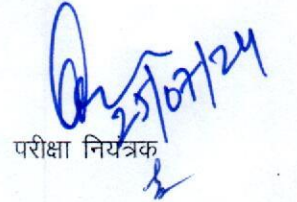 25/07/24
परीक्षा नियंत्रक